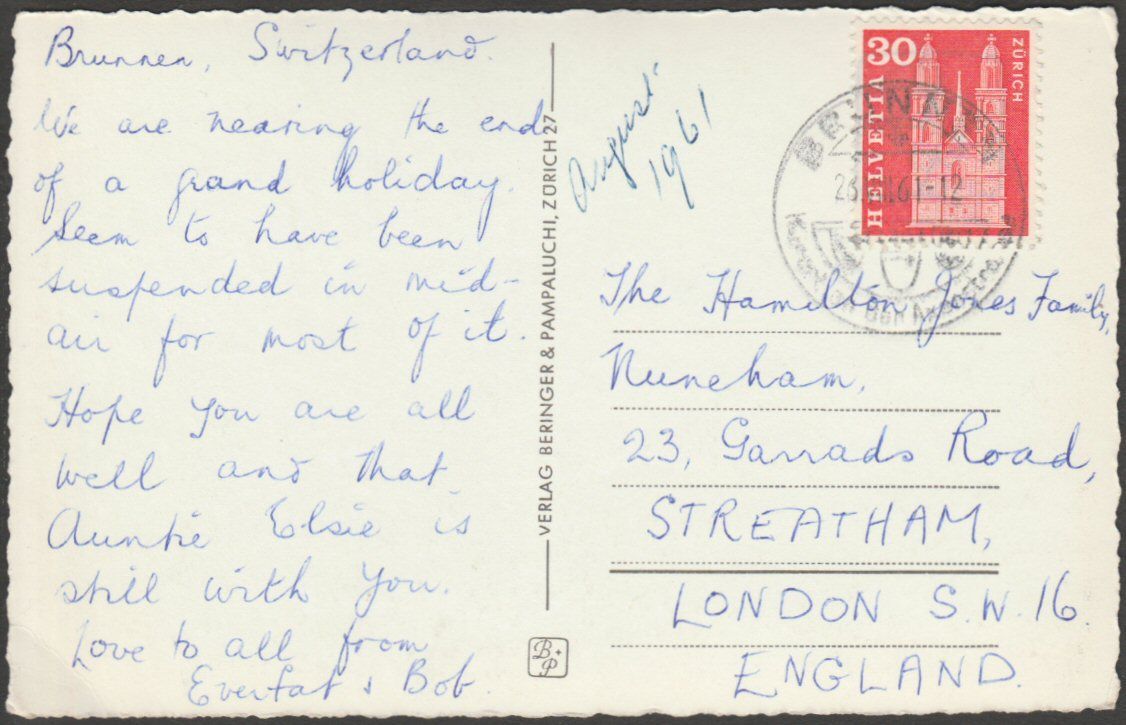 Brunnen, Switzerland.
We are nearing the end
of a grand holiday.
Seem to have been
suspended in mid-
air for most of it.
Hope you are all
well and that
Auntie Elsie is
still with you.
Love to all from
& Bob.
VERLAG BERINGER & PAMPALUCHI, ZÜRICH 27
B+P
August
1961
30
HELVETIA
ZÜRICH
BRUNNEN
61-12
The Hamilton Jones Family,
Nuneham,
23, Garrads Road,
STREATHAM,
LONDON S.W.16.
ENGLAND.